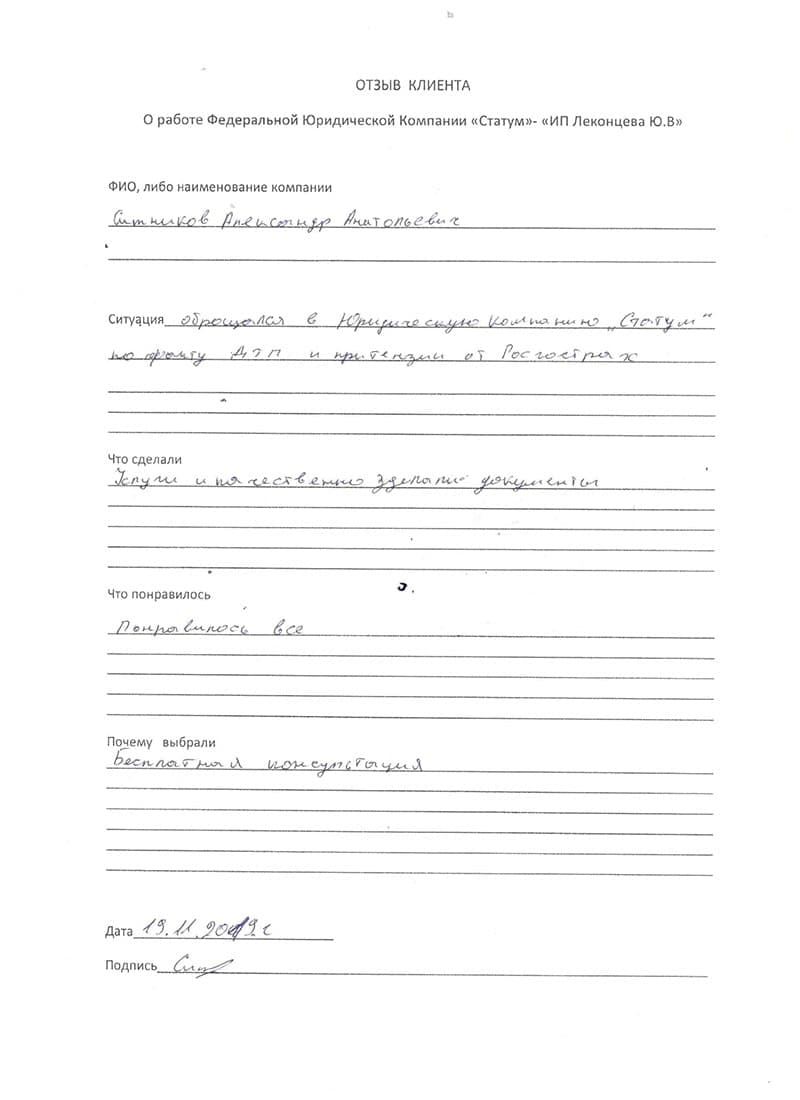 ОТЗЫВ КЛИЕНТА
О работе Федеральной Юридической Компании «Статум»- «ИП Леконцева Ю.В»
ФИО, либо наименование компании
Ситников Александр Анатольевич
Ситуация оброщался в Юридическую компанию „Статум"
по факту ДТП и притензии от Росгострах
Что сделали
и качественно зделали документы
Что понравилось
Понравилось все
Почему выбрали
Бесплатная консультация
Дата 19.11.2019г
Подпись